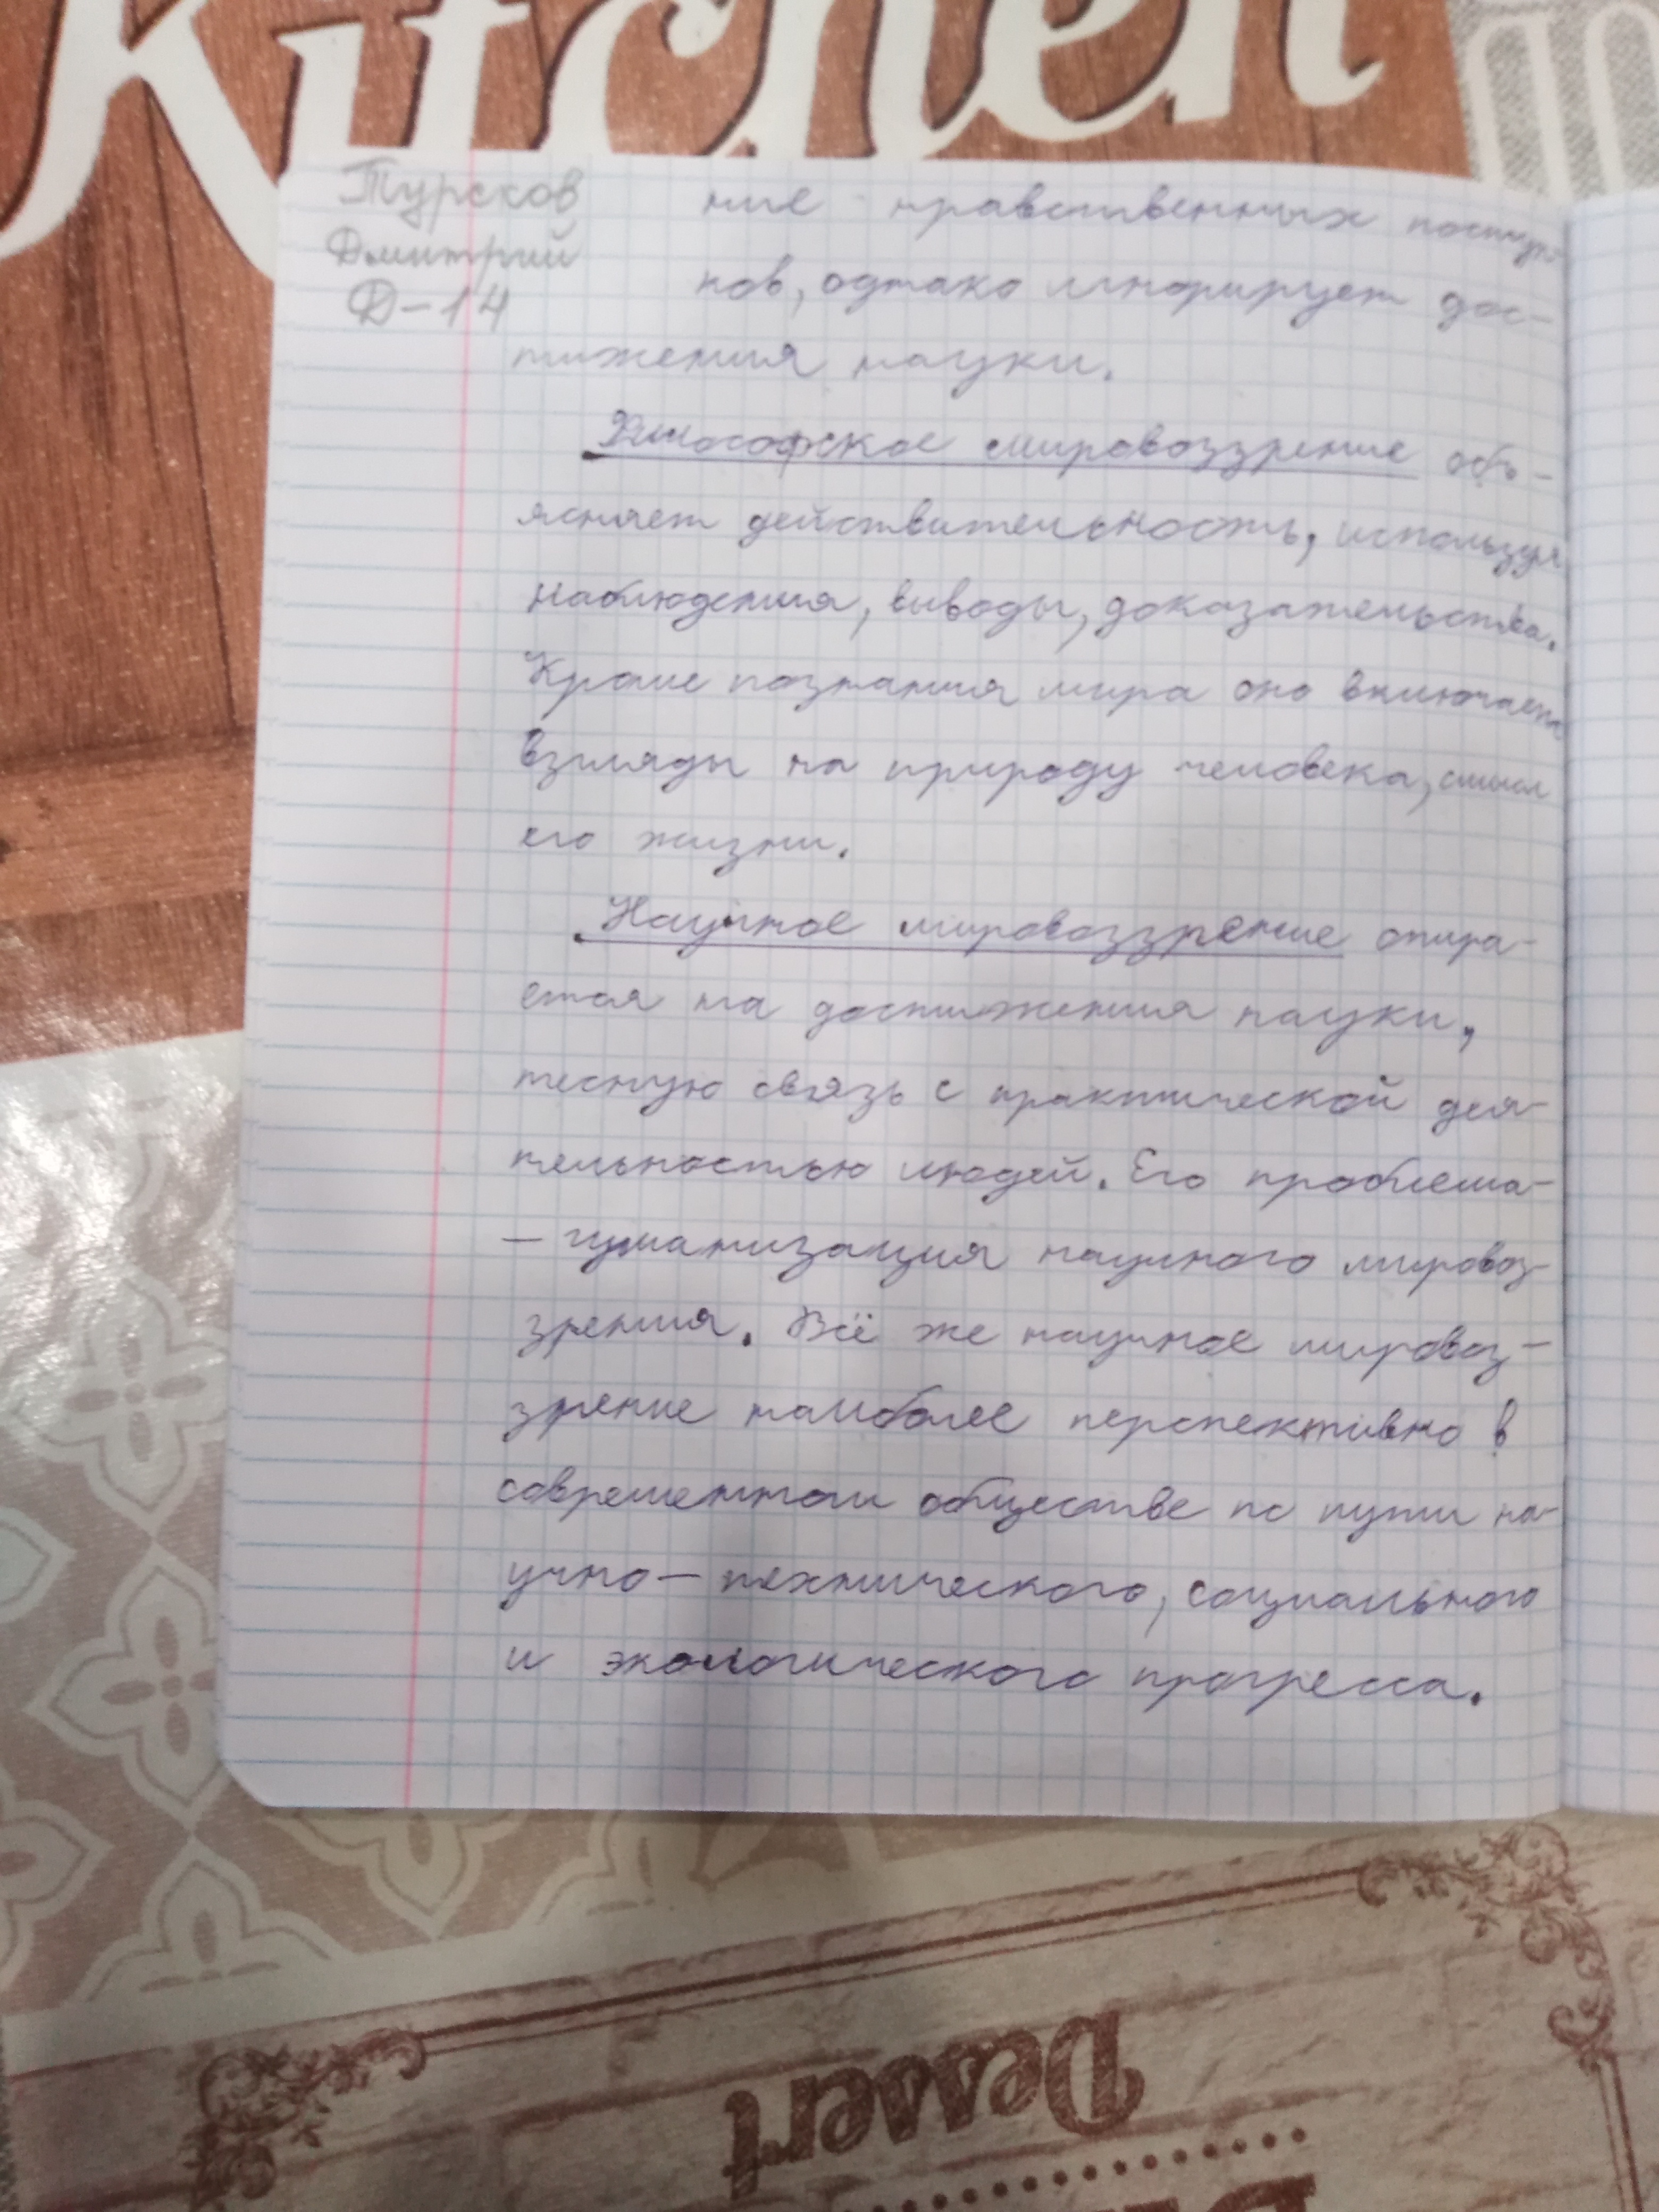 Kitchen
Турсков
Дмитрий
Д-14
ние нравственных поступ-
ков, однако игнорирует дос-
тижения науки.
Философское мировоззрение объ-
ясняет действительность, используя
наблюдения, выводы, доказательства.
Кроме познания мира оно включает
взгляды на природу человека, смысл
его жизни.
Научное мировоззрение опира-
ется на достижения науки,
тесную связь с практической дея-
тельностью людей. Его проблема-
- гуманизация научного мировоз-
зрения. Всё же научное мировоз-
зрение наиболее перспективно в
современном обществе по пути на-
учно-технического, социального
и экологического прогресса.
Dessert